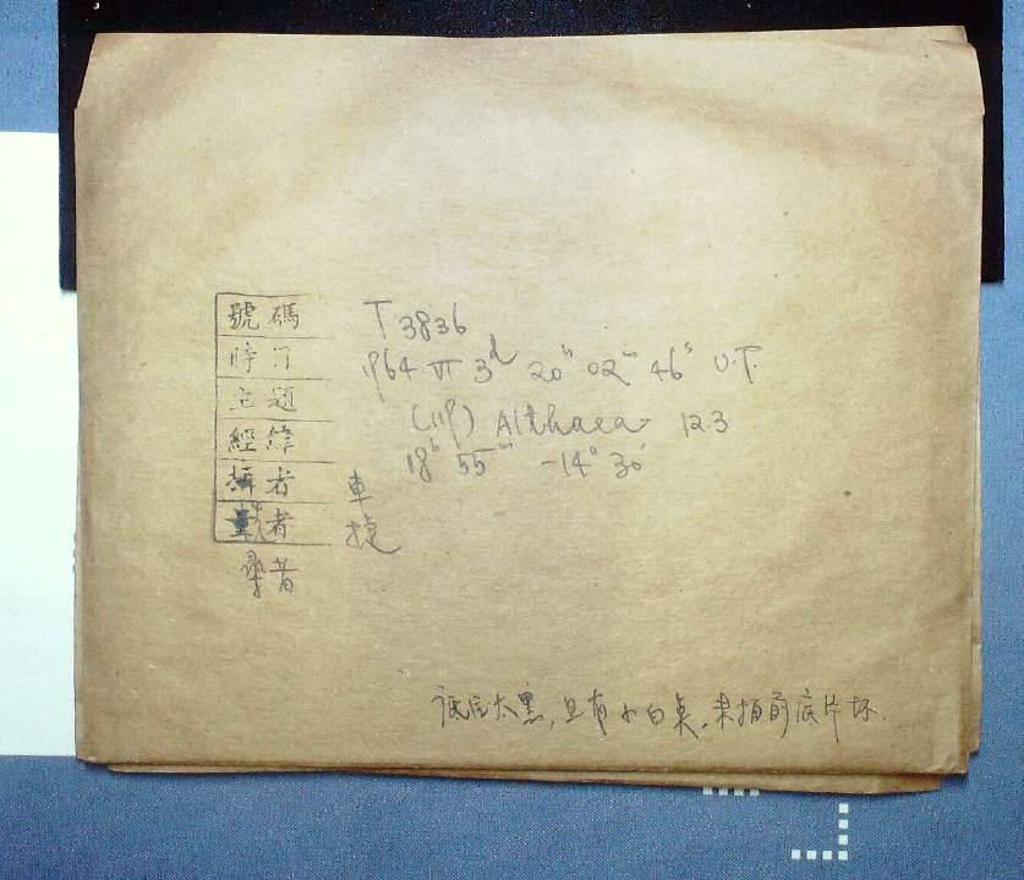 號碼 T 3836
時 1964 VI 3d 20h 02m 46s U.T.
主題 (119) Althaea 12.3
經緯 18h 55m -14° 30'
攝者 車
量者 捷
者
底片太黑,且有小白点,未拍前底片坏.